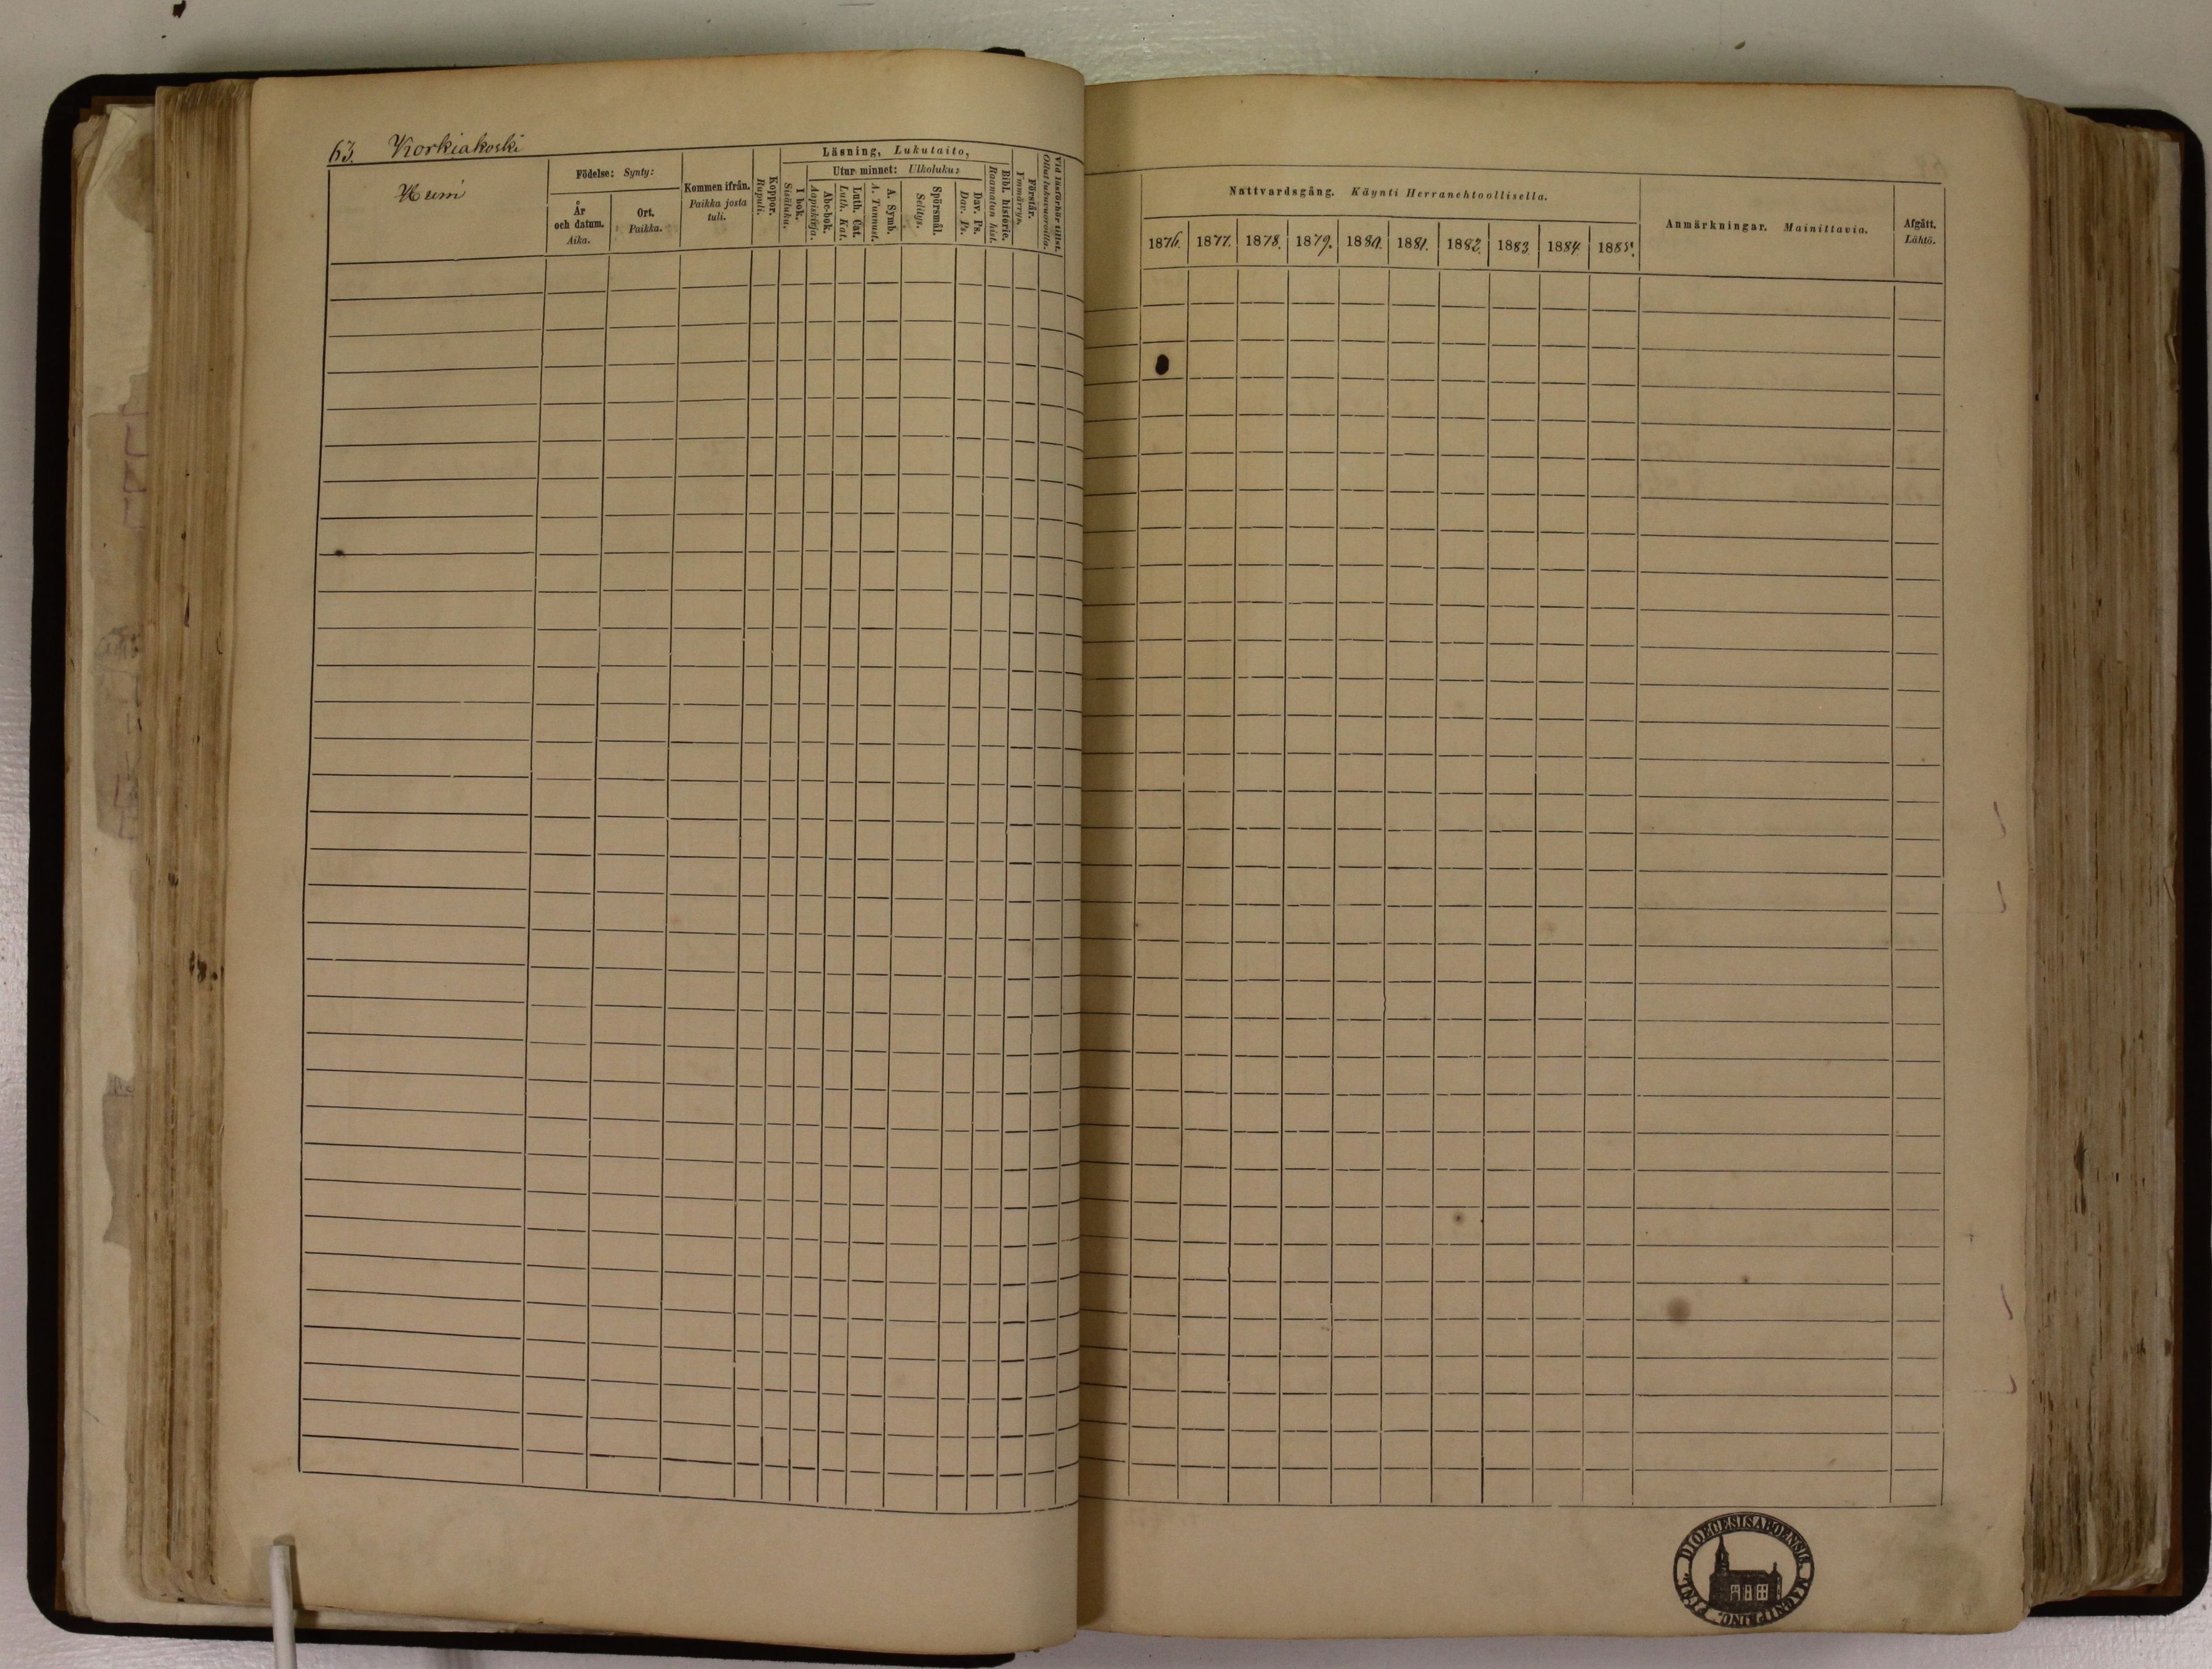 63. Korkiakoski
Heimi
Födelse: Synty:
År
och datum.
Aika.
Ort.
Paikka.
Kommen ifrån.
Paikka josta
tuli.
Koppor.
Rupuli.
Läsning, Lukutaito,
I bok.
Sisäluku.
Utur minnet: Ulkoluku:
Abc-bok.
Aapiskirja.
Luth. Cat.
Luth. Kat.
A. Symb.
A. Tunnust.
Spörsmål.
Selitys.
Dav. Ps.
Dav. Ps.
Bibl. historie.
Raamatun hist.
Förstår.
Ymmärrys.
Vid läsförhör tillst.
Ollut lukuvuoroilla.
Nattvardsgång. Käynti Herranehtoollisella.
1876. 1877. 1878. 1879. 1880. 1881. 1882. 1883. 1884. 1885.
Anmärkningar. Mainittavia.
Afgått.
Lähtö.
DIOECESIS ABOENSIS